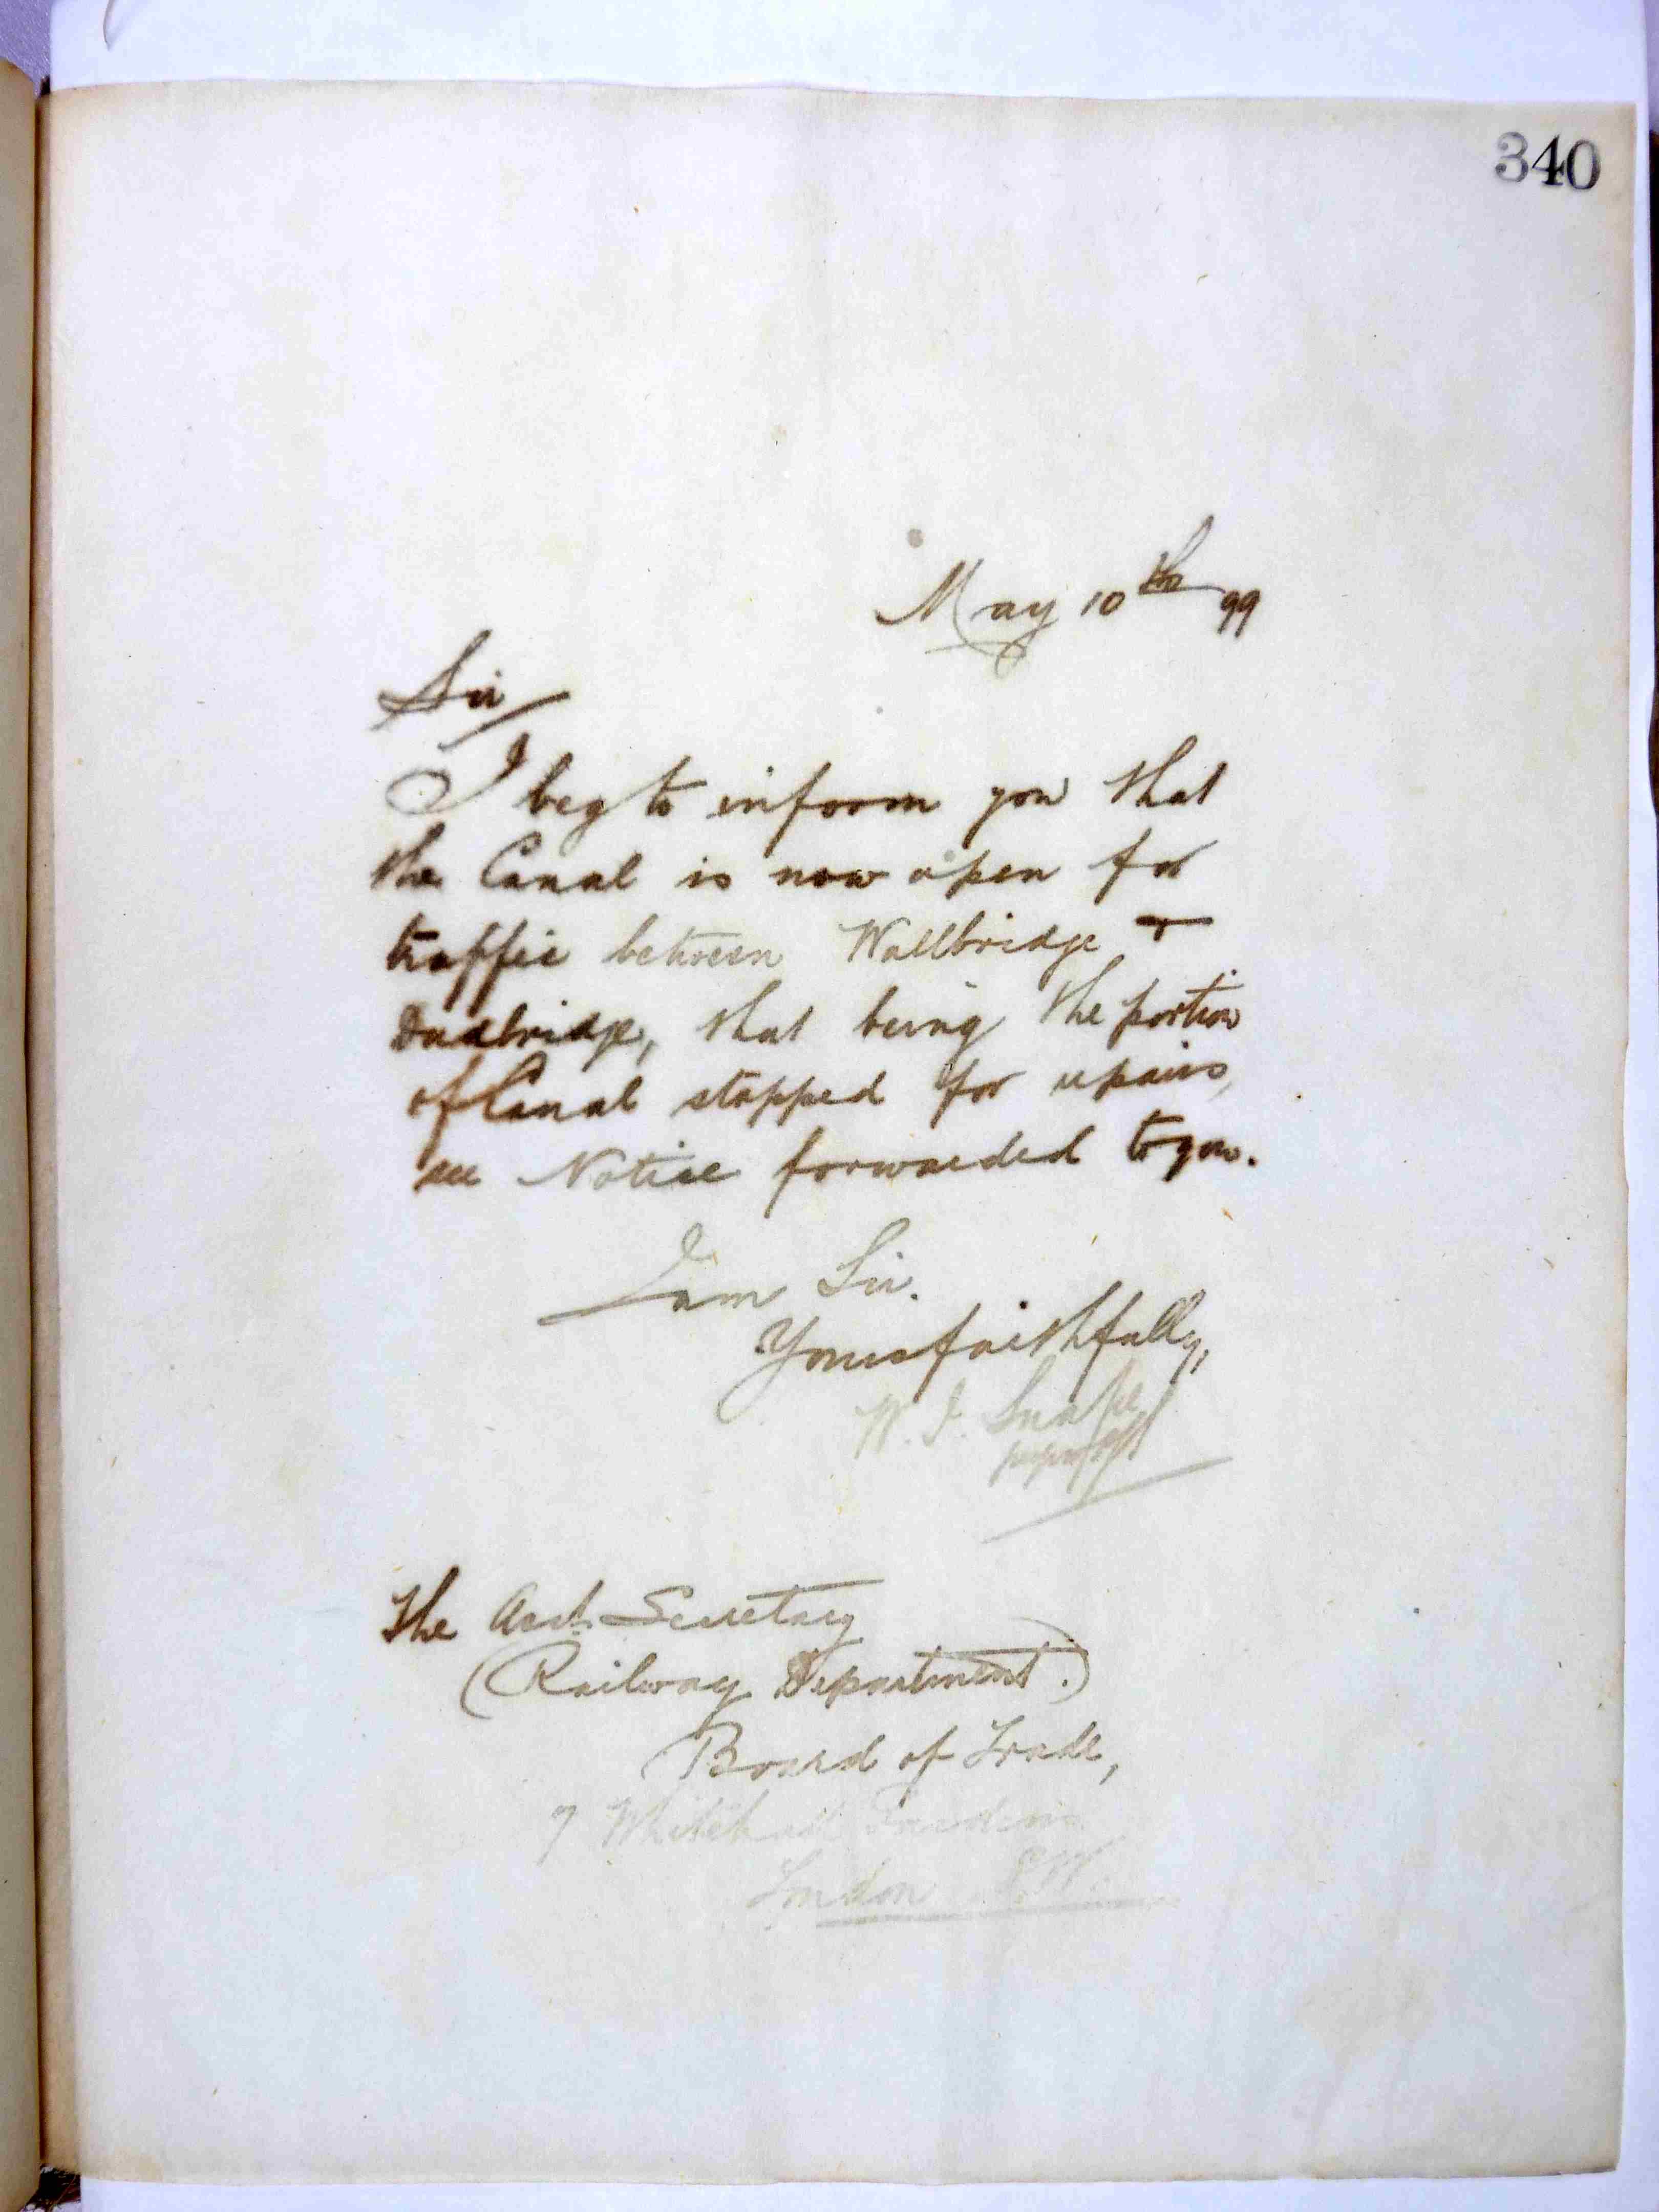 340
May 10th 99
Sir
I beg to inform you that
the Canal is now open for
traffic between Wallbridge &
Dudbridge, that being the portion
of Canal stopped for repairs,
see Notice forwarded to you.
I am Sir.
Yours faithfully,
W. J. Snape
The Asst. Secretary
(Railway Department.)
Board of Trade,
7 Whitehall Gardens
London S.W.